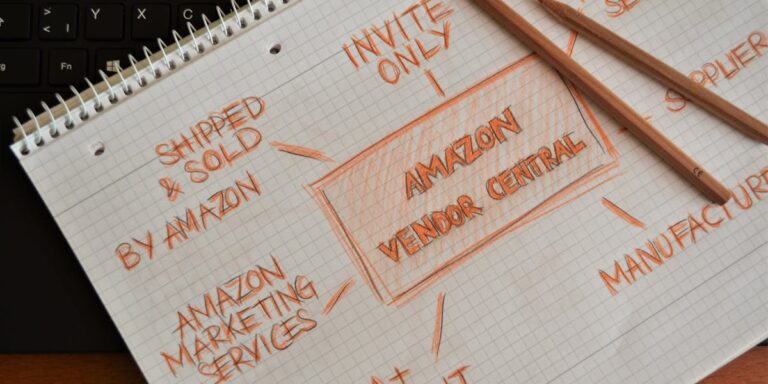 INVITE
ONLY
SHIPPED
& SOLD
BY AMAZON
AMAZON
VENDOR CENTRAL
SUPPLIER
MANUFACTURER
AMAZON
MARKETING
SERVICES
A+
Y
X
C
Fn
Ctrl